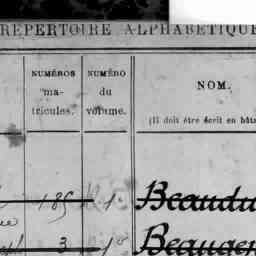 RÉPERTOIRE ALPHABÉTIQUE
NUMÉROS
ma-
tricules.
NUMÉRO
du
volume.
NOM.
(Il doit être écrit en bât
185 1
Beaudu
3 1
Beaugen